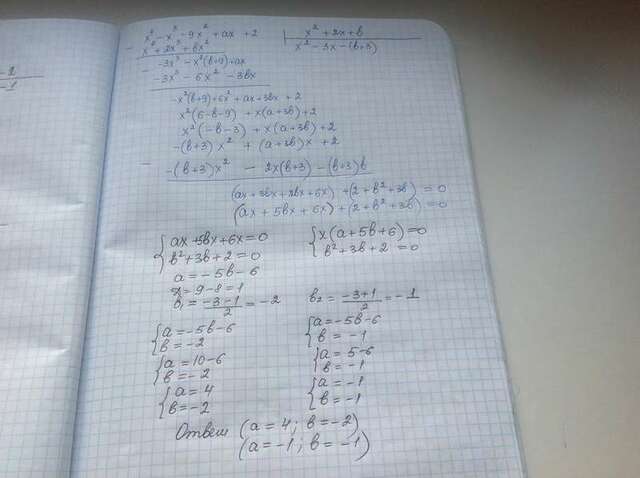 x⁴ - x³ - 9x² + ax + 2 | x² + 2x + b
- x⁴ + 2x³ + bx² | x² - 3x - (b+3)
-3x³ - x²(b+9) + ax
- -3x³ - 6x² - 3bx
-x²(b+9) + 6x² + ax + 3bx + 2
x²(6-b-9) + x(a+3b) + 2
x²(-b-3) + x(a+3b) + 2
-(b+3)x² + (a+3b)x + 2
- -(b+3)x² - 2x(b+3) - (b+3)b
(ax + 3bx + 2bx + 6x) + (2 + b² + 3b) = 0
(ax + 5bx + 6x) + (2 + b² + 3b) = 0
{ax + 5bx + 6x = 0 {x(a + 5b + 6) = 0
b² + 3b + 2 = 0 b² + 3b + 2 = 0
a = -5b - 6
D = 9 - 8 = 1
b₁ = (-3-1)/2 = -2 b₂ = (-3+1)/2 = -1
{a = -5b - 6 {a = -5b - 6
b = -2 b = -1
{a = 10 - 6 {a = 5 - 6
b = -2 b = -1
{a = 4 {a = -1
b = -2 b = -1
Ответ (a = 4; b = -2)
(a = -1; b = -1)